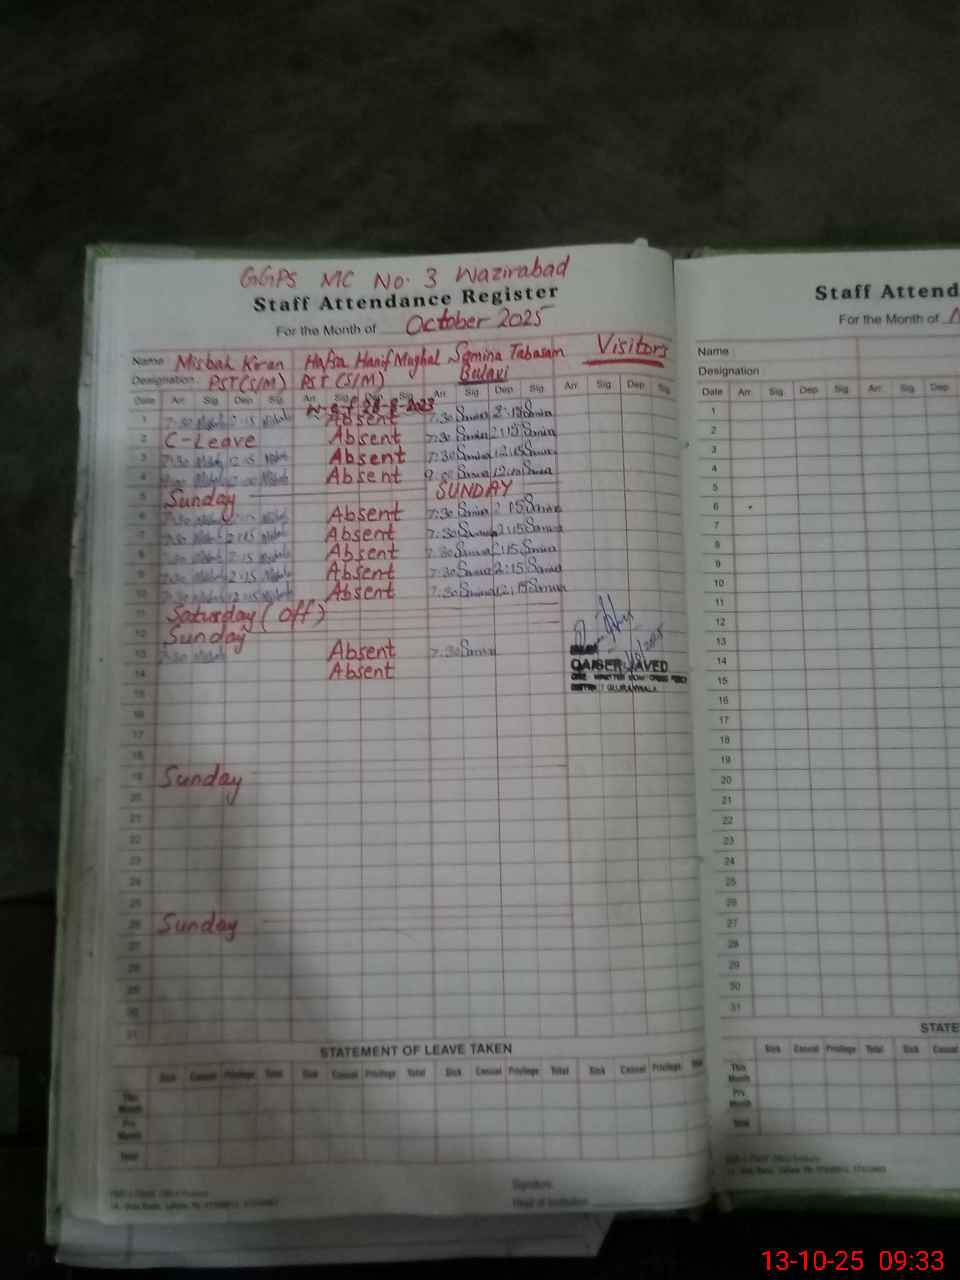 GGPS MC No. 3 Wazirabad
Staff Attendance Register
For the Month of October 2025
Name Misbah Kiran Hafsa Hanif Mughal Samina Tabasam Visitors
Designation PST(S/M) PST (S/M) Bulavi
Date Arr. Sig. Dep. Sig. Arr. Sig. Dep. Sig. Arr. Sig. Dep. Sig. Arr. Sig. Dep. Sig.
w-e-f 28-8-2023
1 7:30 2:15 Absent 7:30 Samina 2:15 Samina
2 C-Leave Absent 7:30 Samina 2:15 Samina
3 7:30 12:15 Absent 7:30 Samina 12:15 Samina
4 Absent 9:00 Samina 12:00 Samina
5 Sunday SUNDAY
6 7:30 Absent 7:30 Samina 2:15 Samina
7 7:30 2:15 Absent 7:30 Samina 2:15 Samina
8 7:30 2:15 Absent 7:30 Samina 2:15 Samina
9 7:30 2:15 Absent 7:30 Samina 2:15 Samina
10 7:30 12:15 Absent 7:30 Samina 12:15 Samina
11 Saturday (Off)
12 Sunday
13 7:30 Absent 7:30 Samina
14 Absent
QAISER JAVED
15
16
17
18
19 Sunday
20
21
22
23
24
25
26 Sunday
27
28
29
30
31
STATEMENT OF LEAVE TAKEN
Sick Casual Privilege Total Sick Casual Privilege Total Sick Casual Privilege Total Sick Casual Privilege
This Month
Prv Month
Total
Signature
Head of Institution
Staff Attend
For the Month of
Name
Designation
Date Arr. Sig. Dep. Sig. Arr. Sig. Dep.
1
2
3
4
5
6
7
8
9
10
11
12
13
14
15
16
17
18
19
20
21
22
23
24
25
26
27
28
29
30
31
STATE
Sick Casual Privilege Total Sick Casual
This Month
Prv Month
Total
13-10-25 09:33